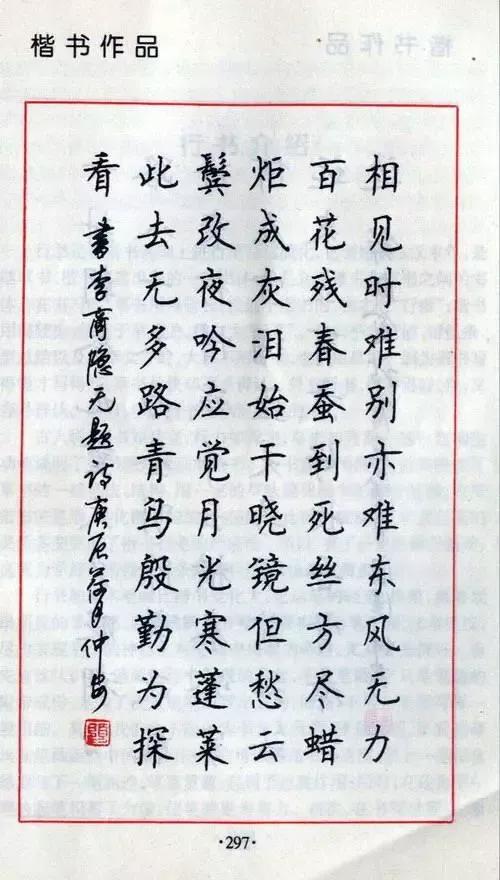 楷书作品
相见时难别亦难东风无力
百花残春蚕到死丝方尽蜡
炬成灰泪始干晓镜但愁云
鬓改夜吟应觉月光寒蓬莱
此去无多路青鸟殷勤为探
看 书李商隐无题诗庚辰荷月仲
·297·